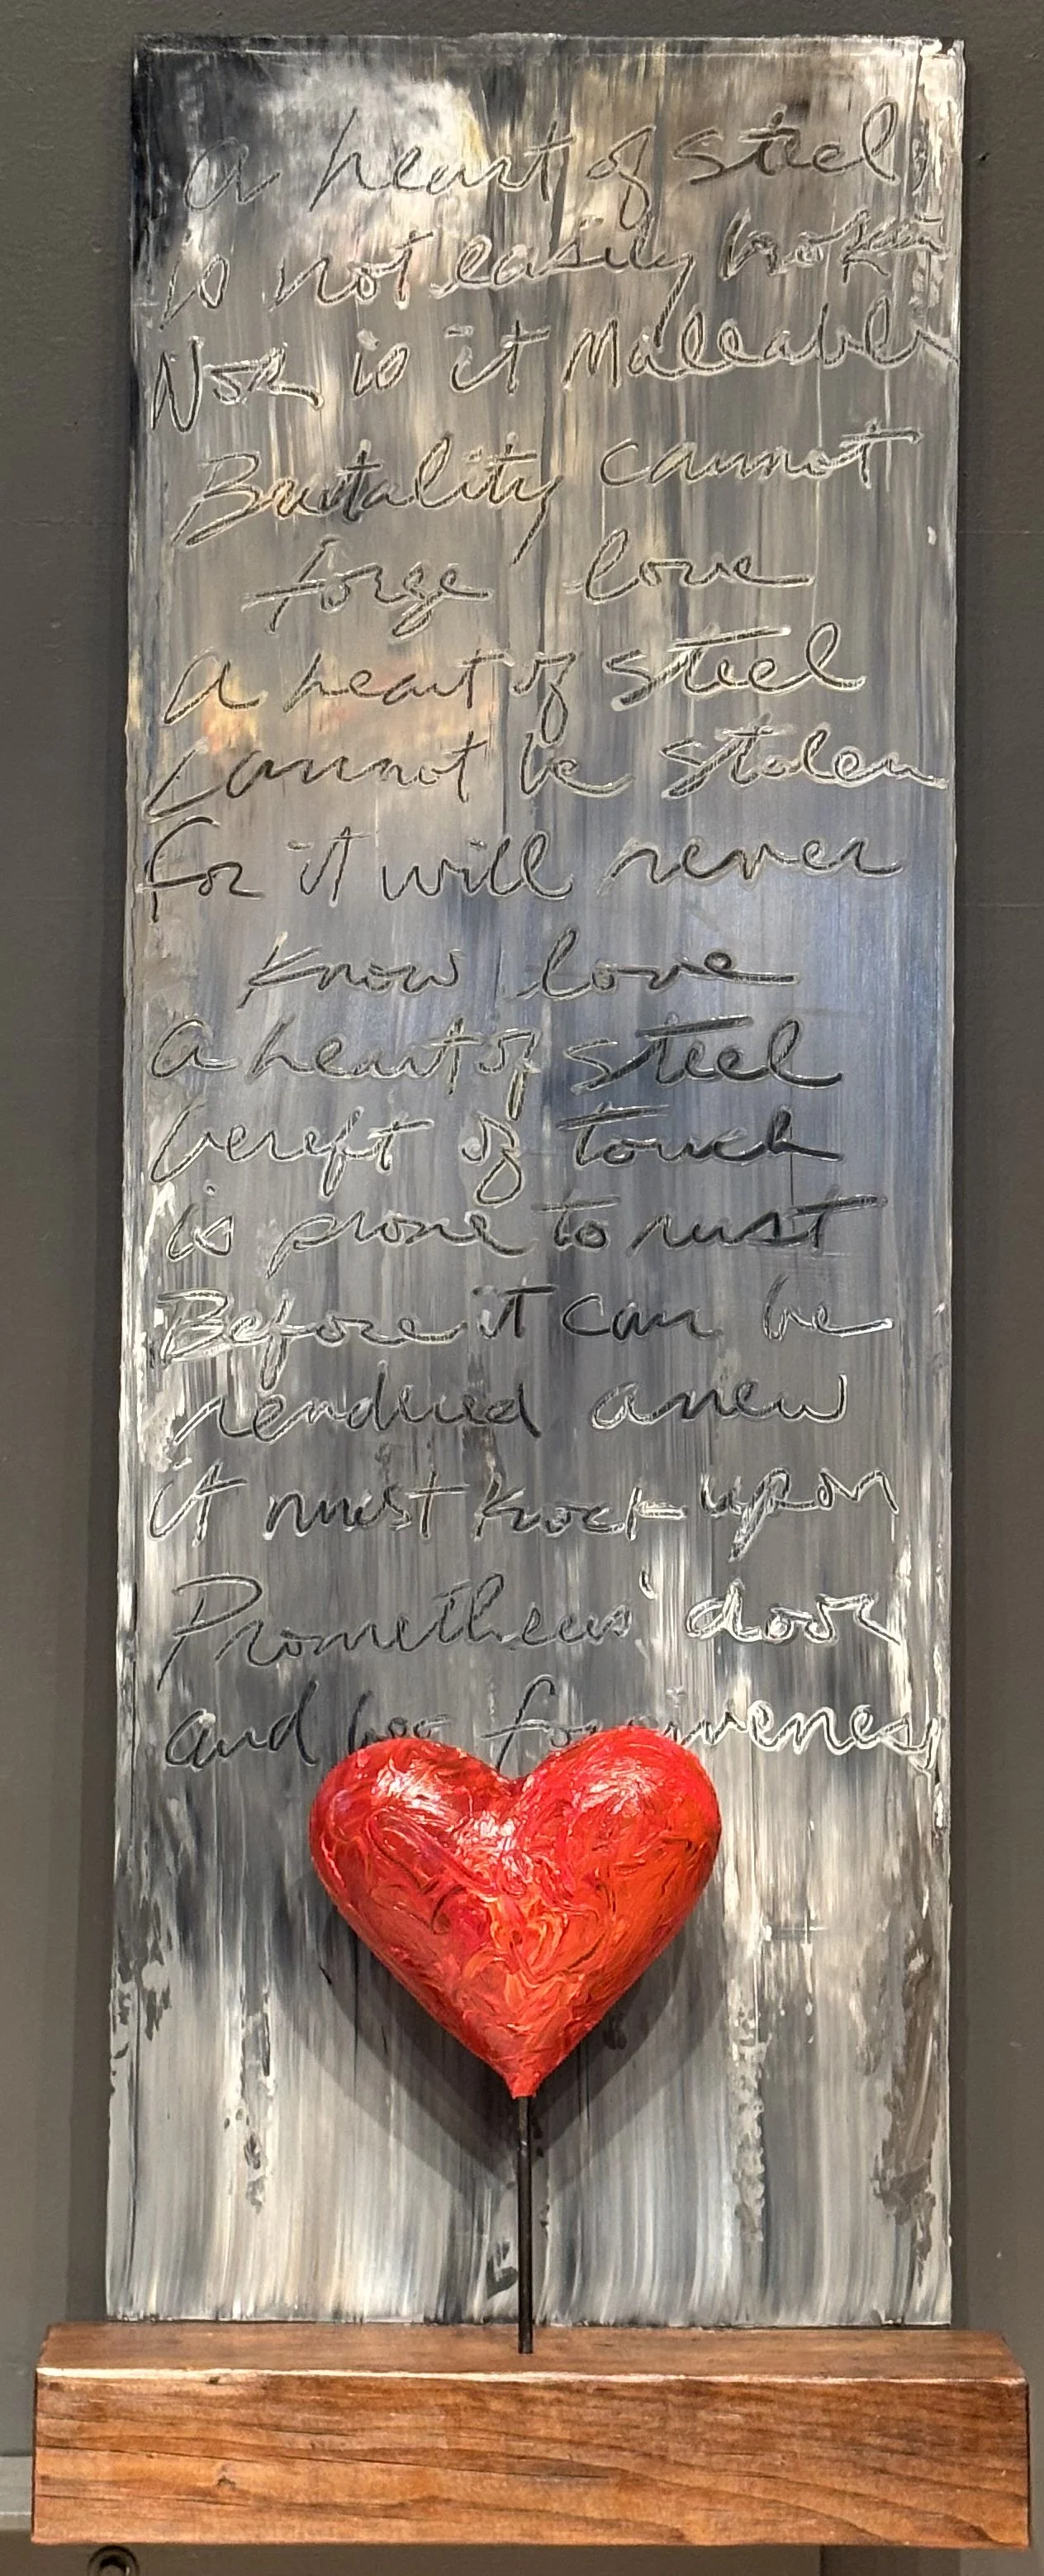 A heart of steel,
is not easily broken
Nor is it Malleable
Brutality cannot
forge love
A heart of steel
Cannot be stolen
For it will never
know love
A heart of steel
bereft of touch
is prone to rust
Before it can be
rendered anew
it must knock upon
Prometheus' door
and forgiveness